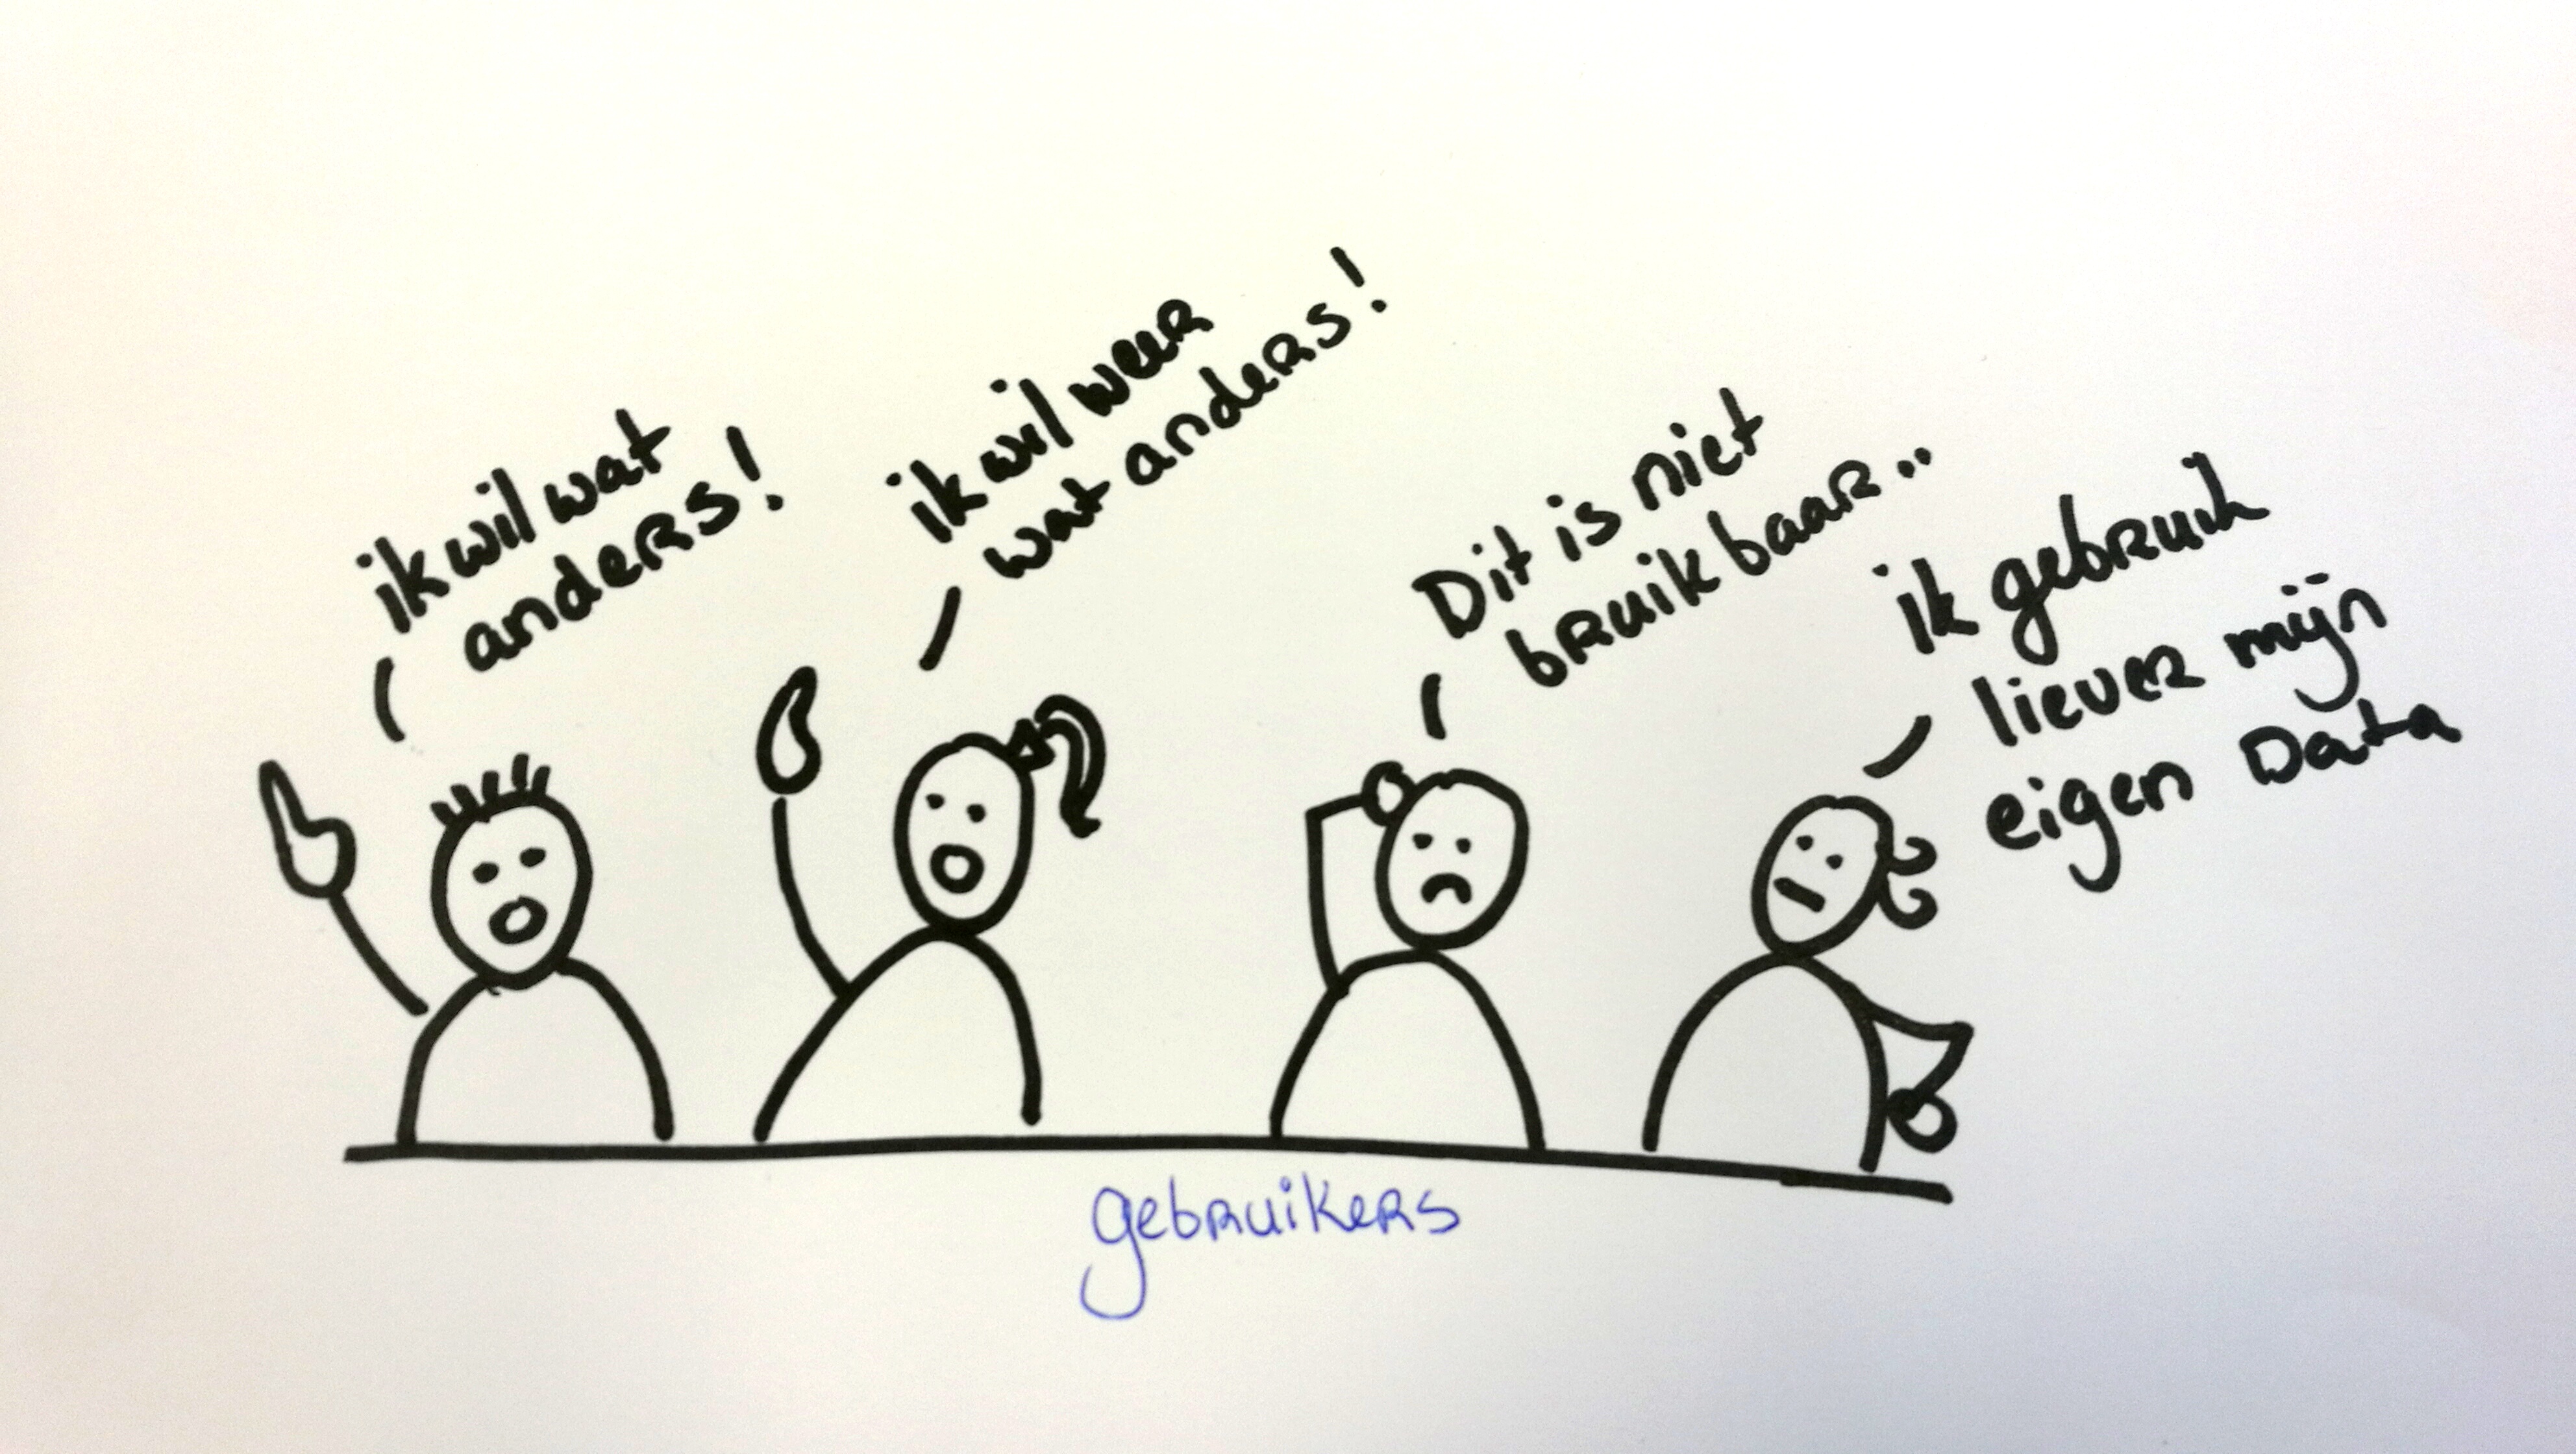 ik wil wat
anders!
ik wil weer
wat anders!
Dit is niet
bruikbaar..
ik gebruik
liever mijn
eigen Data
gebruikers